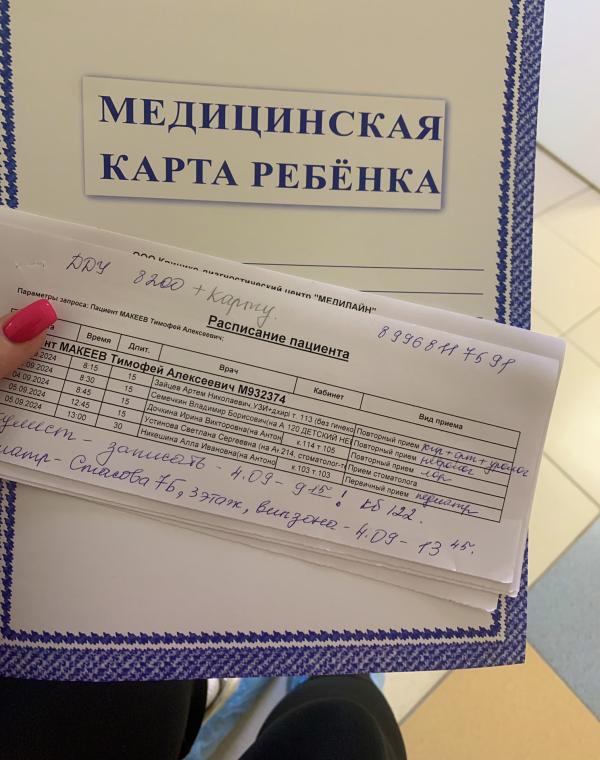 МЕДИЦИНСКАЯ
КАРТА РЕБЁНКА
ООО Клинико-диагностический центр "МЕДИЛАЙН"
ДДУ 8200 + карту.
89968117691
Параметры запроса: Пациент МАКЕЕВ Тимофей Алексеевич;
Расписание пациента
Время Длит. Врач Кабинет Вид приема
нт МАКЕЕВ Тимофей Алексеевич М932374
.09.2024 8:15 15 Зайцев Артем Николаевич,УЗИ+дхирі т. 113 (без гинеко Повторный прием хир + орт + уролог
04.09.2024 8:30 15 Семечкин Владимир Борисович(на А 120 ДЕТСКИЙ НЕ Повторный прием невролог
.09.2024 8:45 15 Дочкина Ирина Викторовна(на Антон к.114 т.105 Повторный прием лор
05.09.2024 12:45 15 Устинова Светлана Сергеевна (на Ан 214. стоматолог-т Прием стоматолога
05.09.2024 13:00 30 Никешина Алла Ивановна(на Антоно к.103 т.103 Первичный прием педиатр
записать - 4.09 - 9 15 ! КБ 122.
иатр - Стасова 7Б, 3 этаж, випзона - 4.09 - 13 45.